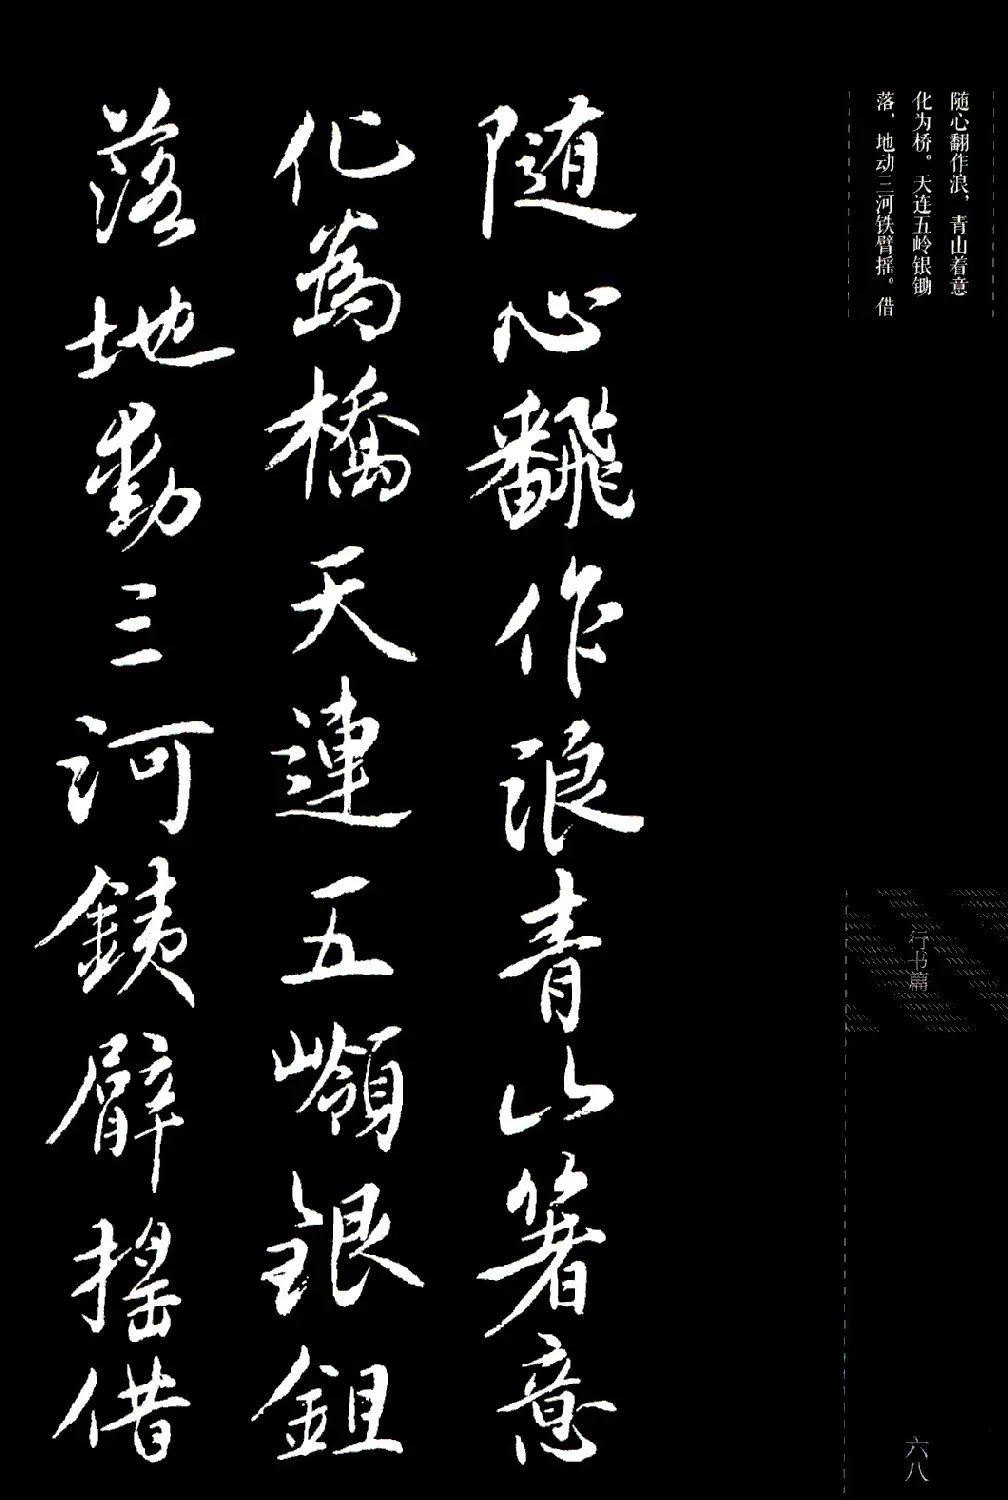 随心翻作浪，青山着意
化为桥。天连五岭银锄
落，地动三河铁臂摇。借
行书篇
六八
随心飜作浪青山箸意
化為橋天連五嶺銀鉏
落地動三河銕臂搖借